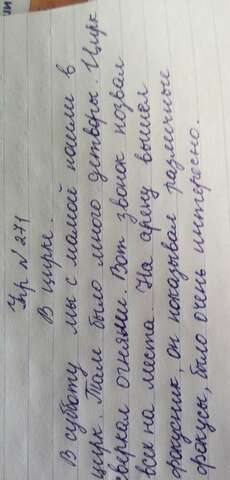 Упр N 271
В цирке.
В субботу мы с мамой пошли в
цирк. Там было много детворы. Цирк
сверкал огнями. Вот звонок позвал
всех на места. На арену вышел
фокусник, он показывал различные
фокусы, было очень интересно.